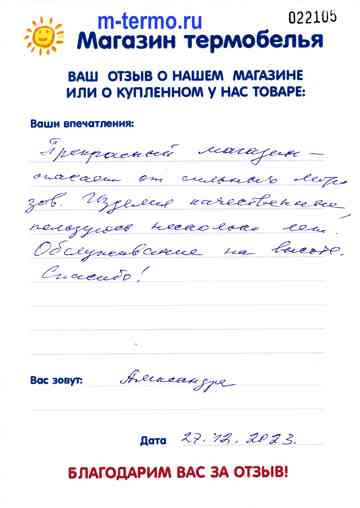 m-termo.ru
022105
Магазин термобелья
ВАШ ОТЗЫВ О НАШЕМ МАГАЗИНЕ
ИЛИ О КУПЛЕННОМ У НАС ТОВАРЕ:
Ваши впечатления:
Прекрасный магазин –
спасает от сильных моро
зов. Изделия качественные,
пользуюсь несколько лет.
Обслуживание на высоте.
Спасибо!
Вас зовут: Александра
Дата 27.12.2023.
БЛАГОДАРИМ ВАС ЗА ОТЗЫВ!